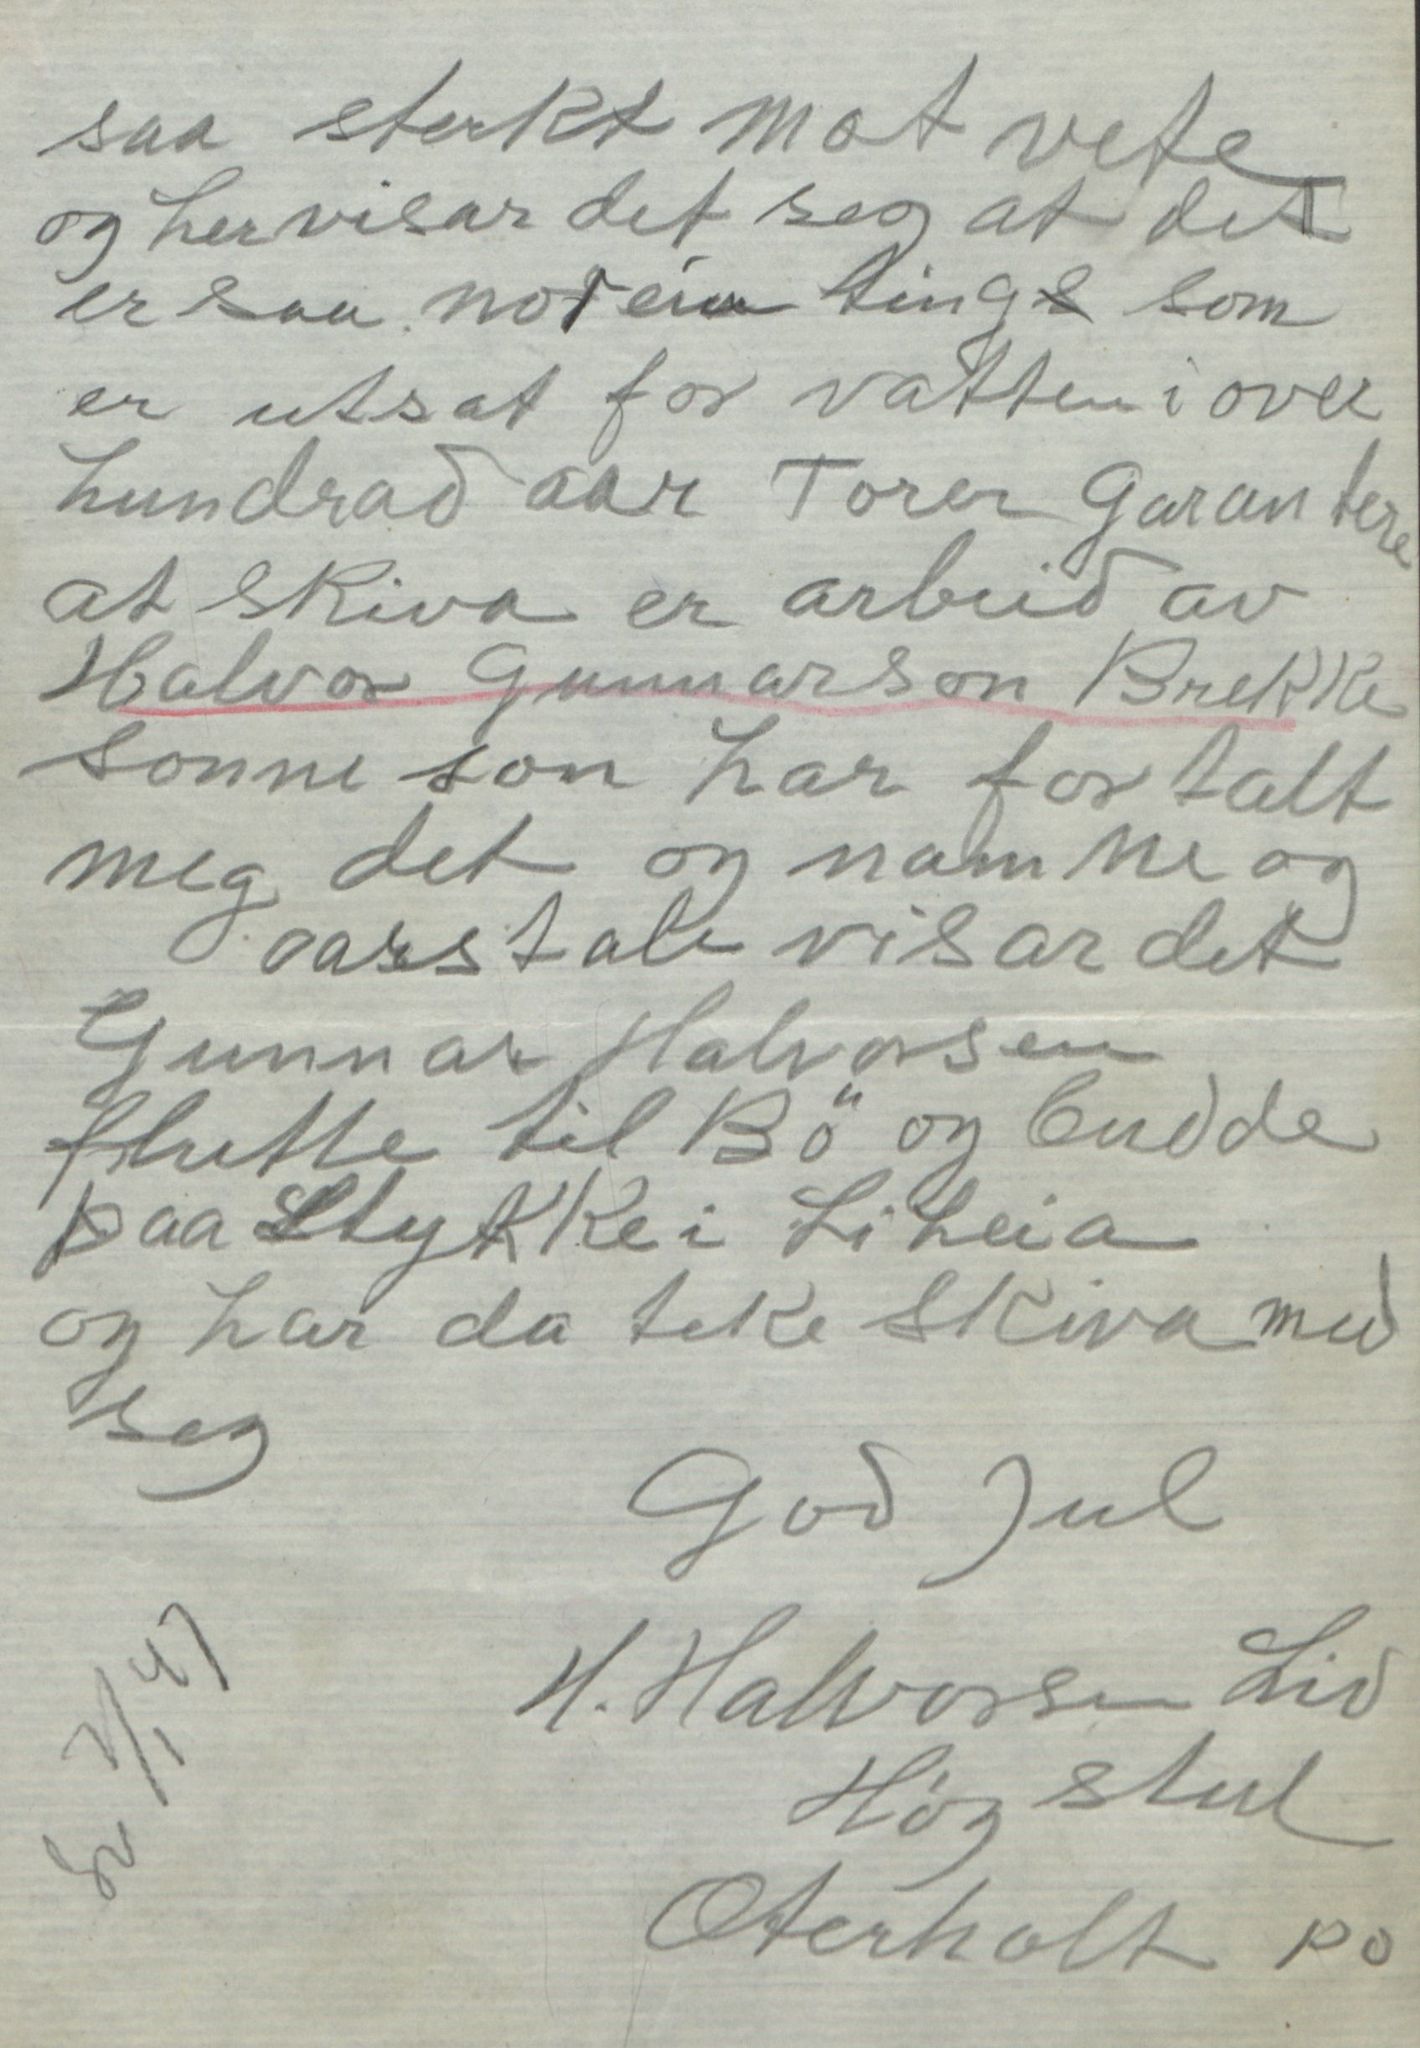 saa sterkt mot vete
og her visar det seg at det
er saa nor ein tings som
er utsat for vatten i over
hundrad aar Torer Garantere
at skiva er arbeid av
Halvor Gunnarson Brekke
sonne son har fortalt
meg det og namne og
aarstale visar det
Gunnar Halvorsen
flutte til Bö og budde
paa Stykke i Liheia
og har da teke skiva med
seg
God Jul
H. Halvorsen Lid
Høgstul
Oterholt po
Sv 2/1 47